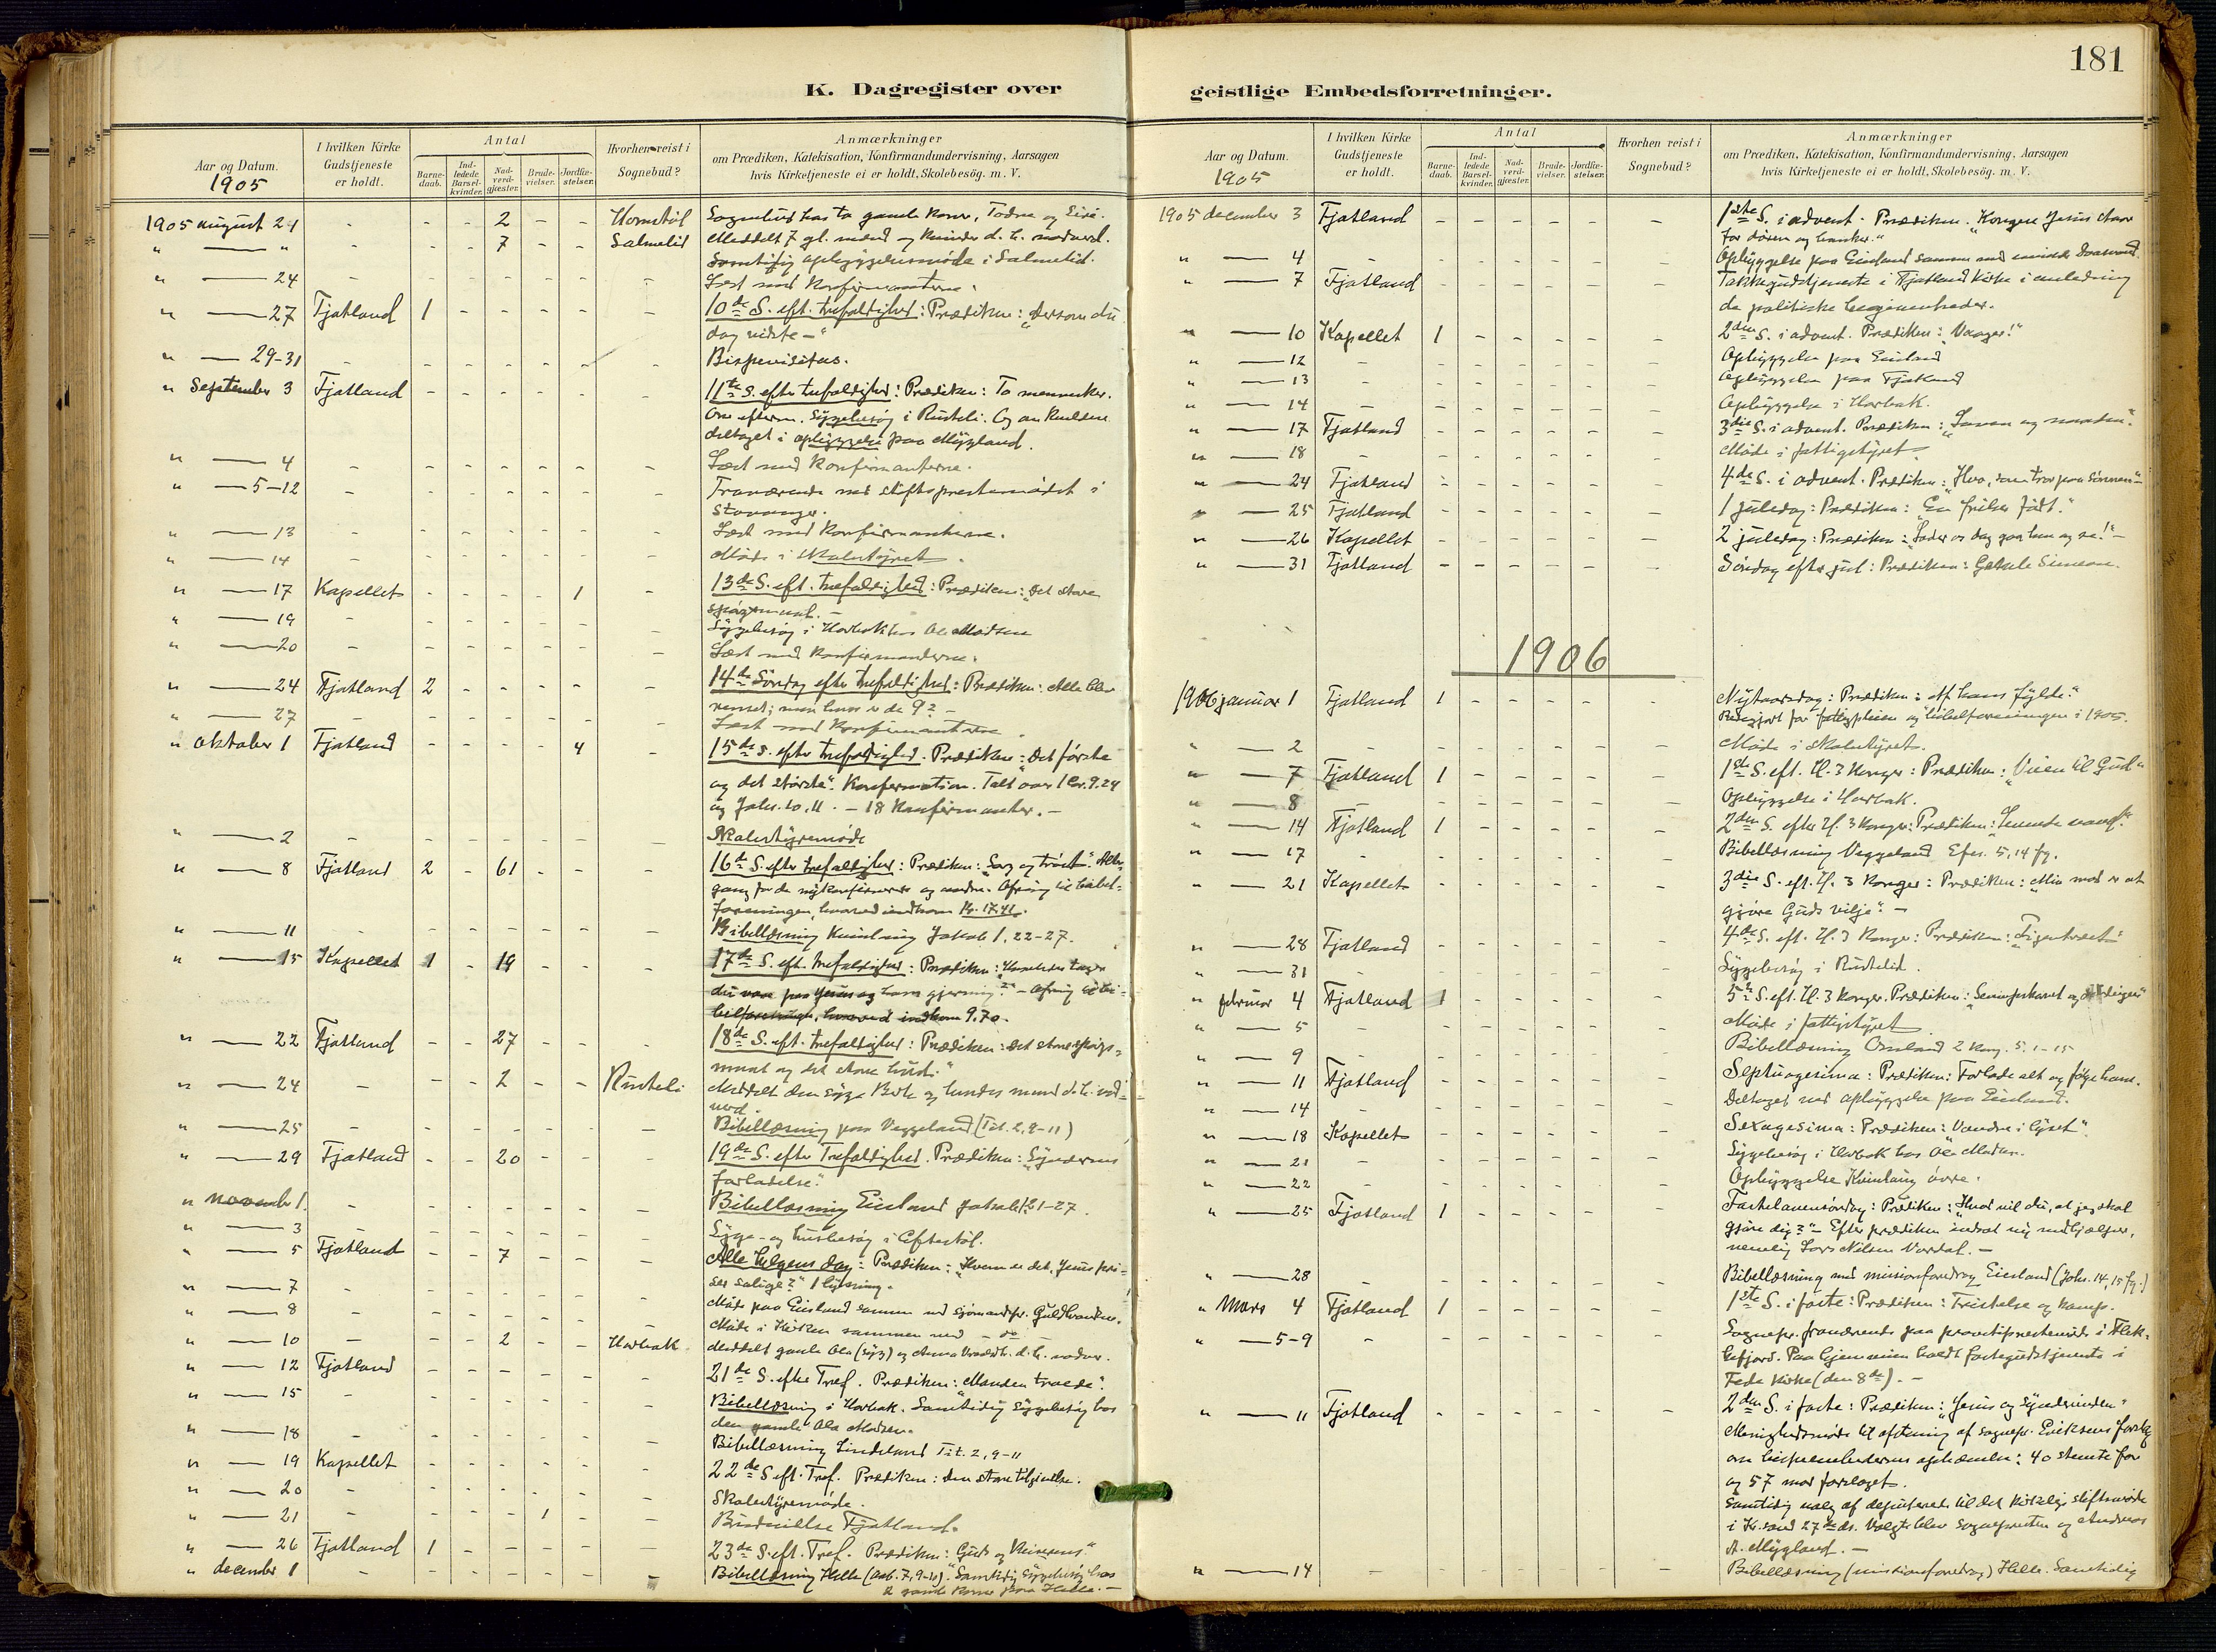 181
K. Dagregister over
geistlige Embedsforretninger.
Aar og Datum.
1905
I hvilken Kirke Gudstjeneste er holdt.
Antal
Barnedaab.
Indledede Barselkvinder.
Nadverdgjæster.
Brudevielser.
Jordfæstelser.
Hvorhen reist i Sognebud?
Anmærkninger
om Prædiken, Katekisation, Konfirmandundervisning, Aarsagen
hvis Kirketjeneste ei er holdt, Skolebesøg. m. V.
1905 august 24 - - - 2 - - Homstøl Sognebud hos to gamle koner, Todne og Siri.
" — " - - - 7 - - Salmelid Meddelt 7 gl. mænd og kvinder d. h. nadverd.
Samtidig opbyggelsesmøde i Salmelid.
" — 24 - - - - - - - Læst med konfirmanterne.
" — 27 Fjotland 1 - - - - - 10de S. eft. trefoldighed: Prædiken: "Dersom du
dog vidste -"
" — 29-31 - - - - - - - Bispevisitas.
" September 3 Fjotland - - - - - - 11te S. efter trefoldighed: Prædiken: To mennesker.
Om efterm. sygebesøg i Rusteli. Og om kvelden
deltaget i opbyggelse paa Mygland.
" — 4 - - - - - - - Læst med konfirmanterne.
" — 5-12 - - - - - - - Fraværende ved stiftsprestemødet i
Stavanger.
" — 13 - - - - - - - Læst med konfirmanterne.
" — 14 - - - - - - - Møde i skolestyret.
" — 17 Kapellet - - - - 1 - 13de S. eft. trefoldighed: Prædiken: "Det store
spørgsmaal. -
" — 19 - - - - - - - Sygebesøg i Horbak hos Ole Madsen
" — 20 - - - - - - - Læst med konfirmanterne.
" — 24 Fjotland 2 - - - - - 14de Søndag efter trefoldighed: Prædiken: Alle blev
renset; men hvor er de 9? -
" — 27 - - - - - - - Læst med konfirmanterne.
" oktober 1 Fjotland - - - - 4 - 15de S. efter trefoldighed. Prædiken: "Det første
og det største". Konfirmation. Talt over 1 Cor. 9.24
og Johs. 10.11. - 18 konfirmanter. -
" — 2 - - - - - - - Skolestyremøde
" — 8 Fjotland 2 - 61 - - - 16de S. efter trefoldighed: Prædiken: "Sorg og trøst". Alter-
gang for de nykonfirmerte og andre. Ofring til bibel-
foreningen, hvorved indkom Kr. 17.41.
" — 11 - - - - - - - Bibellæsning Kvinlaug Jakob 1, 22-27.
" — 15 Kapellet 1 - 19 - - - 17de S. eft. trefoldighed: Prædiken: "Hvorledes tager
du vare paa Jesus og hans gjerning?" - Ofring til bi-
belforeningen, hvorved indkom 9.70.
" — 22 Fjotland - - 27 - - - 18de S. eft. trefoldighed: Prædiken: "Det store spørgs-
maal og det store bud."
" — 24 - - - 2 - - Rusteli Meddelt den syge Berte og hendes mand d. h. nad-
verd.
" — 25 - - - - - - - Bibellæsning paa Veggeland (Tit. 2, 9-11)
" — 29 Fjotland - - 20 - - - 19de S. efter Trefoldighed. Prædiken: "Syndernes
forladelse."
" november 1. - - - - - - - Bibellæsning Eiesland Jakob 1. 21-27.
" — 3 - Syge- og husbesøg i Eftestøl.
" — 5 Fjotland - - 7 - - - Alle helgens dag: Prædiken: "Hvem er det, Jesus pri-
ser salige?" 1 lysning.
" — 7 - - - - - - - Møde paa Eiesland sammen med sjømandspr. Guldbrandsen.
" — 8 - - - - - - - Møde i Kirken sammen med - do -
" — 10 - - - 2 - - Horbak Meddelt gamle Ola (syg) og Anna d. h. nadver.
" — 12 Fjotland - - - - - - 21de S. efter Tref. Prædiken: "Manden troede".
" — 15 - - - - - - - Bibellæsning i Horbak. Samtidig sygebesøg hos
den gamle Ola Madsen.
" — 18 - - - - - - - Bibellæsning Lindeland Tit. 2, 9-11
" — 19 Kapellet - - - - - - 22de S. eft. Tref. Prædiken: Den store tilgivelse.
" — 20 - - - - - - - Skolestyremøde.
" — 21 - - - - 1 - - Brudevielse Fjotland.
" — 26 Fjotland 1 - - - - - 23de S. eft. Tref. Prædiken: Guds og Keiserens"
" december 1 - - - - - - - Bibellæsning Helle Samtidig sygebesøg hos
2 gamle koner paa Helle. -
Aar og Datum.
1905
I hvilken Kirke Gudstjeneste er holdt.
Antal
Barnedaab.
Indledede Barselkvinder.
Nadverdgjæster.
Brudevielser.
Jordfæstelser.
Hvorhen reist i Sognebud?
Anmærkninger
om Prædiken, Katekisation, Konfirmandundervisning, Aarsagen
hvis Kirketjeneste ei er holdt, Skolebesøg. m. V.
1905 december 3 Fjotland - - - - - - 1ste S. i advent. Prædiken: "Kongen Jesus staar
for døren og banker."
" — 4 - - - - - - - Opbyggelse paa Eiesland sammen med
" — 7 Fjotland - - - - - - Takkegudstjeneste i Fjotland kirke i anledning
de politiske begivenheder.
" — 10 Kapellet 1 - - - - - 2den S. i advent. Prædiken: "Vaager!"
" — 12 - - - - - - - Opbyggelse paa Eiesland
" — 13 - - - - - - - Opbyggelse paa Fjotland
" — 14 - - - - - - - Opbyggelse i Horbak.
" — 17 Fjotland - - - - - - 3die S. i advent. Prædiken: "Loven og naaden".
" — 18 - - - - - - - Møde i fattigstyret.
" — 24 Fjotland - - - - - - 4de S. i advent. Prædiken: "Hver, som tror paa Sønnen"-
" — 25 Fjotland - - - - - - 1 juledag: Prædiken: "En frelser født."
" — 26 Kapellet - - - - - - 2 juledag: Prædiken: "Lader os dog gaa hen og se!" -
" — 31 Fjotland - - - - - - Søndag efter jul: Prædiken: Gamle Simeon.
1906
1906 januar 1 Fjotland 1 - - - - - Nytaarsdag: Prædiken: "Af hans fylde."
Redegjort for fattigpleien og bibelforeningen i 1905.
" — 2 - - - - - - - Møde i skolestyret.
" — 7 Fjotland 1 - - - - - 1ste S. eft. H. 3 Konger: Prædiken: "Veien til Gud"
" — 8 - - - - - - - Opbyggelse i Horbak.
" — 14 Fjotland 1 - - - - - 2den S. efter H. 3 Konger: Prædiken: "Levende vand".
" — 17 - - - - - - - Bibellæsning Veggeland Efes. 5, 14 fg.
" — 21 Kapellet - - - - - - 3die S. eft. H. 3 Konger: Prædiken: "Min mad er at
gjøre Guds vilje". -
" — 28 Fjotland - - - - - - 4de S. eft. H. 3 Konger: Prædiken: "Figentræet"
" — 31 - - - - - - - Sygebesøg i Rustelid.
" februar 4 Fjotland 1 - - - - - 5te S. eft. H. 3 Konger. Prædiken: "Sennepskornet og deigen"
" — 5 - - - - - - - Møde i fattigstyret
" — 9 - - - - - - - Bibellæsning Omland 2 Kong. 5. 1-15
" — 11 Fjotland - - - - - - Septuagesima: Prædiken: Forlade alt og følge ham.
" — 14 - - - - - - - Deltaget ved opbyggelse paa Eiesland.
" — 18 Kapellet - - - - - - Sexagesima: Prædiken: "Vandre i lyset".
" — 21 - - - - - - - Sygebesøg i Horbak hos Ole Madsen.
" — 22 - - - - - - - Opbyggelse Kvinlaug øvre.
" — 25 Fjotland 1 - - - - - Fastelavnssøndag: Prædiken: "Hvad vil du, at jeg skal
gjøre dig?" - Efter prædiken indsat ny medhjælper,
nemlig Lars Nilsen Vordal. -
" — 28 - - - - - - - Bibellæsning med missionsforedrag Eiesland (Johs. 14, 15 fg.)
" Mars 4 Fjotland 1 - - - - - 1ste S. i faste: Prædiken: Fristelse og kamp.
" — 5-9 - - - - - - - Sognepr. fraværende paa provstiprestemøde i Flek-
kefjord. Paa hjemveien holdt fastegudstjeneste i
Feda kirke (den 8de). -
" — 11 Fjotland - - - - - - 2den S. i faste: Prædiken: "Jesus og synderinden"
Menighedsmøde til afstemning af sognepr. Eriksens forslag
om bispeembedernes ophævelse; 40 stemte for
og 57 mod forslaget.
Samtidig valg af deputerede til det kirkelige stiftsmøde
i Kr.sand 27de ds. Valgte blev sognepresten og Andreas
A. Mygland. -
" — 14 - - - - - - - Bibellæsning (missionsforedrag) Helle. Samtidig